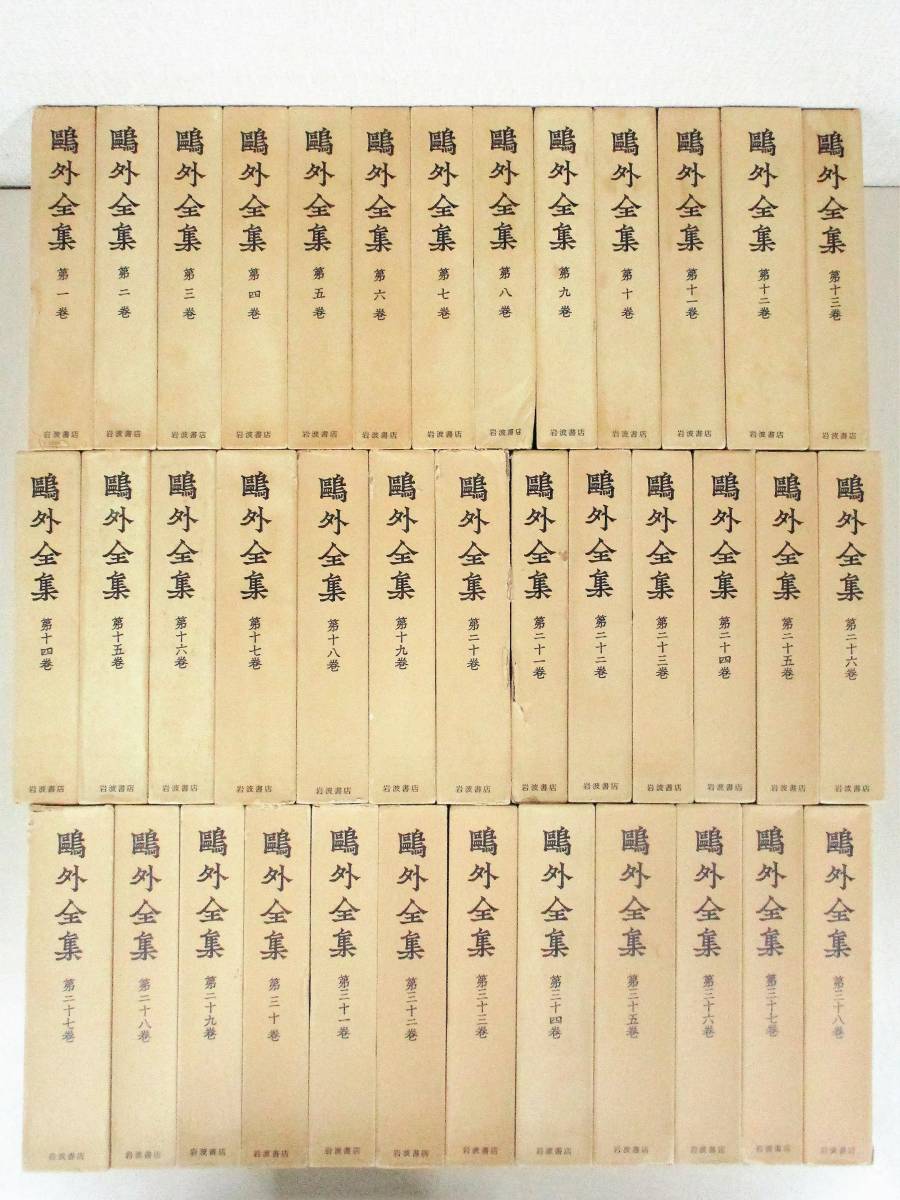 鷗外全集 第一巻 岩波書店
鷗外全集 第二巻 岩波書店
鷗外全集 第三巻 岩波書店
鷗外全集 第四巻 岩波書店
鷗外全集 第五巻 岩波書店
鷗外全集 第六巻 岩波書店
鷗外全集 第七巻 岩波書店
鷗外全集 第八巻 岩波書店
鷗外全集 第九巻 岩波書店
鷗外全集 第十巻 岩波書店
鷗外全集 第十一巻 岩波書店
鷗外全集 第十二巻 岩波書店
鷗外全集 第十三巻 岩波書店
鷗外全集 第十四巻 岩波書店
鷗外全集 第十五巻 岩波書店
鷗外全集 第十六巻 岩波書店
鷗外全集 第十七巻 岩波書店
鷗外全集 第十八巻 岩波書店
鷗外全集 第十九巻 岩波書店
鷗外全集 第二十巻 岩波書店
鷗外全集 第二十一巻 岩波書店
鷗外全集 第二十二巻 岩波書店
鷗外全集 第二十三巻 岩波書店
鷗外全集 第二十四巻 岩波書店
鷗外全集 第二十五巻 岩波書店
鷗外全集 第二十六巻 岩波書店
鷗外全集 第二十七巻 岩波書店
鷗外全集 第二十八巻 岩波書店
鷗外全集 第二十九巻 岩波書店
鷗外全集 第三十巻 岩波書店
鷗外全集 第三十一巻 岩波書店
鷗外全集 第三十二巻 岩波書店
鷗外全集 第三十三巻 岩波書店
鷗外全集 第三十四巻 岩波書店
鷗外全集 第三十五巻 岩波書店
鷗外全集 第三十六巻 岩波書店
鷗外全集 第三十七巻 岩波書店
鷗外全集 第三十八巻 岩波書店